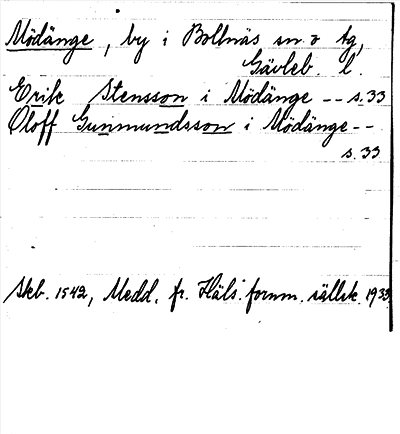 Mödänge, by i Bollnäs sn o tg,
Gävleb. l.
Erik Stensson i Mödänge -- s. 33
Oloff Gunmundsson i Mödänge --
s. 33
Skb. 1542, Medd. fr. Häls. fornm. sällsk. 1933